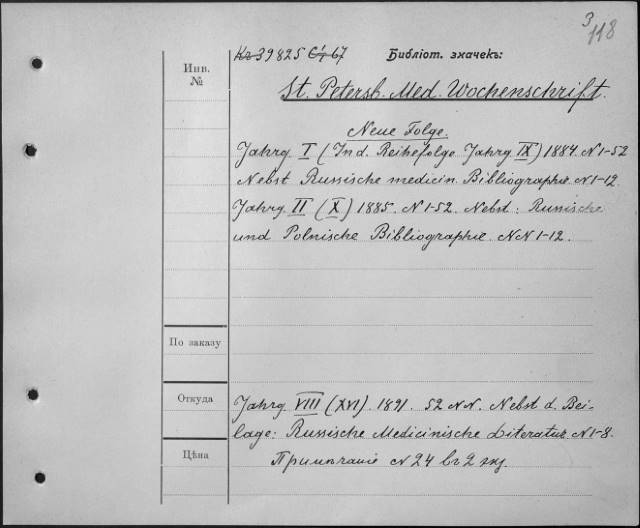 3/118
Кг 39825 С/т 67 Библіот. значекъ:
Инв.
№
St. Petersb. Med. Wochenschrift.
Neue Folge.
Jahrg. I (In d. Reihefolge Jahrg. IX) 1884. N 1-52
Nebst Russische medicin. Bibliographie. N 1-12.
Jahrg. II (X) 1885. N 1-52. Nebst: Russische
und Polnische Bibliographie. NN 1-12.
По заказу
Откуда
Jahrg. VIII (XVI). 1891. 52 NN. Nebst d. Bei-
lage: Russische Medicinische Literatur. N 1-8.
Цѣна
Примѣчаніе N 24 въ 2 экз.